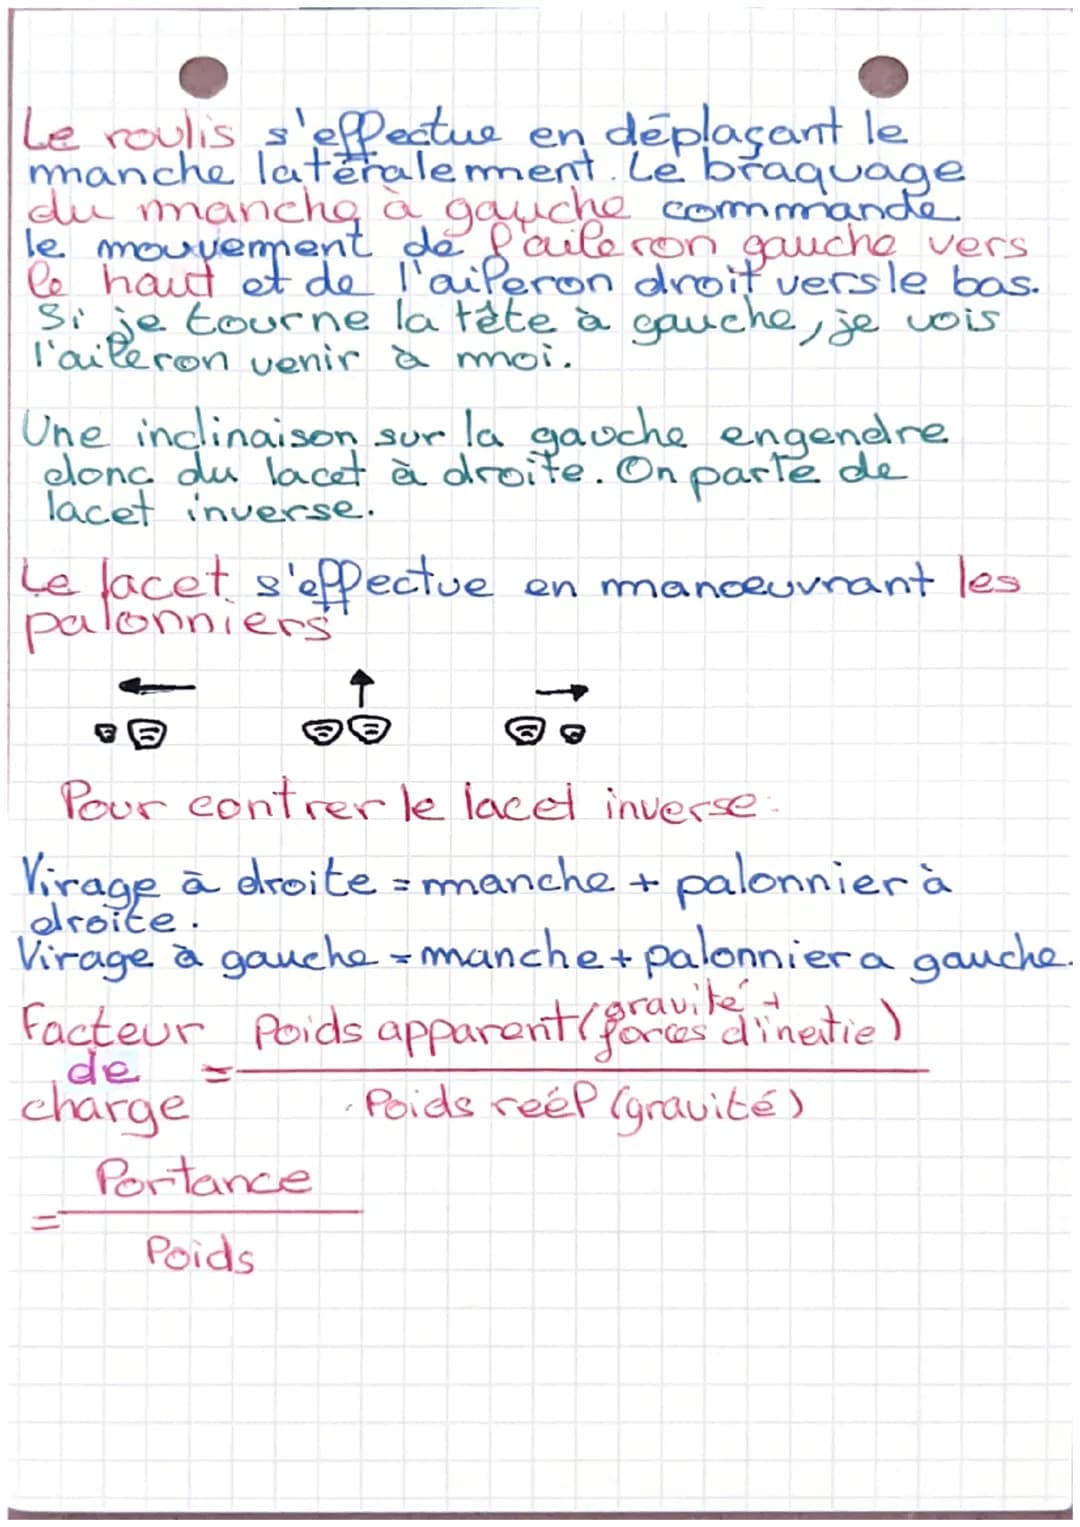 Le roulis s'effectue en déplaçant le
manche latéralement. Le braquage
du manche à gauche commande
le mouvement de l'aileron gauche vers
le haut et de l'aileron droit vers le bas.
Si je tourne la tête à gauche, je vois
l'aileron venir à moi.
Une inclinaison sur la gauche engendre
donc du lacet à droite. On parle de
lacet inverse.
Le lacet s'effectue en manoeuvrant les
palonniers
Pour contrer le lacet inverse:
Virage à droite = manche + palonnier à
droite.
Virage à gauche = manche + palonnier a gauche.
Facteur de charge = Poids apparent (gravité + forces d'inertie)
Poids réel (gravité)
= Portance
Poids